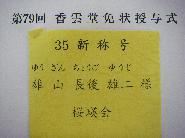 第79回 香雲堂免状授与式
35 新称号
ゆう ざん ちょうご ゆうじ
雄山 長後 雄二 様
桜瑛会